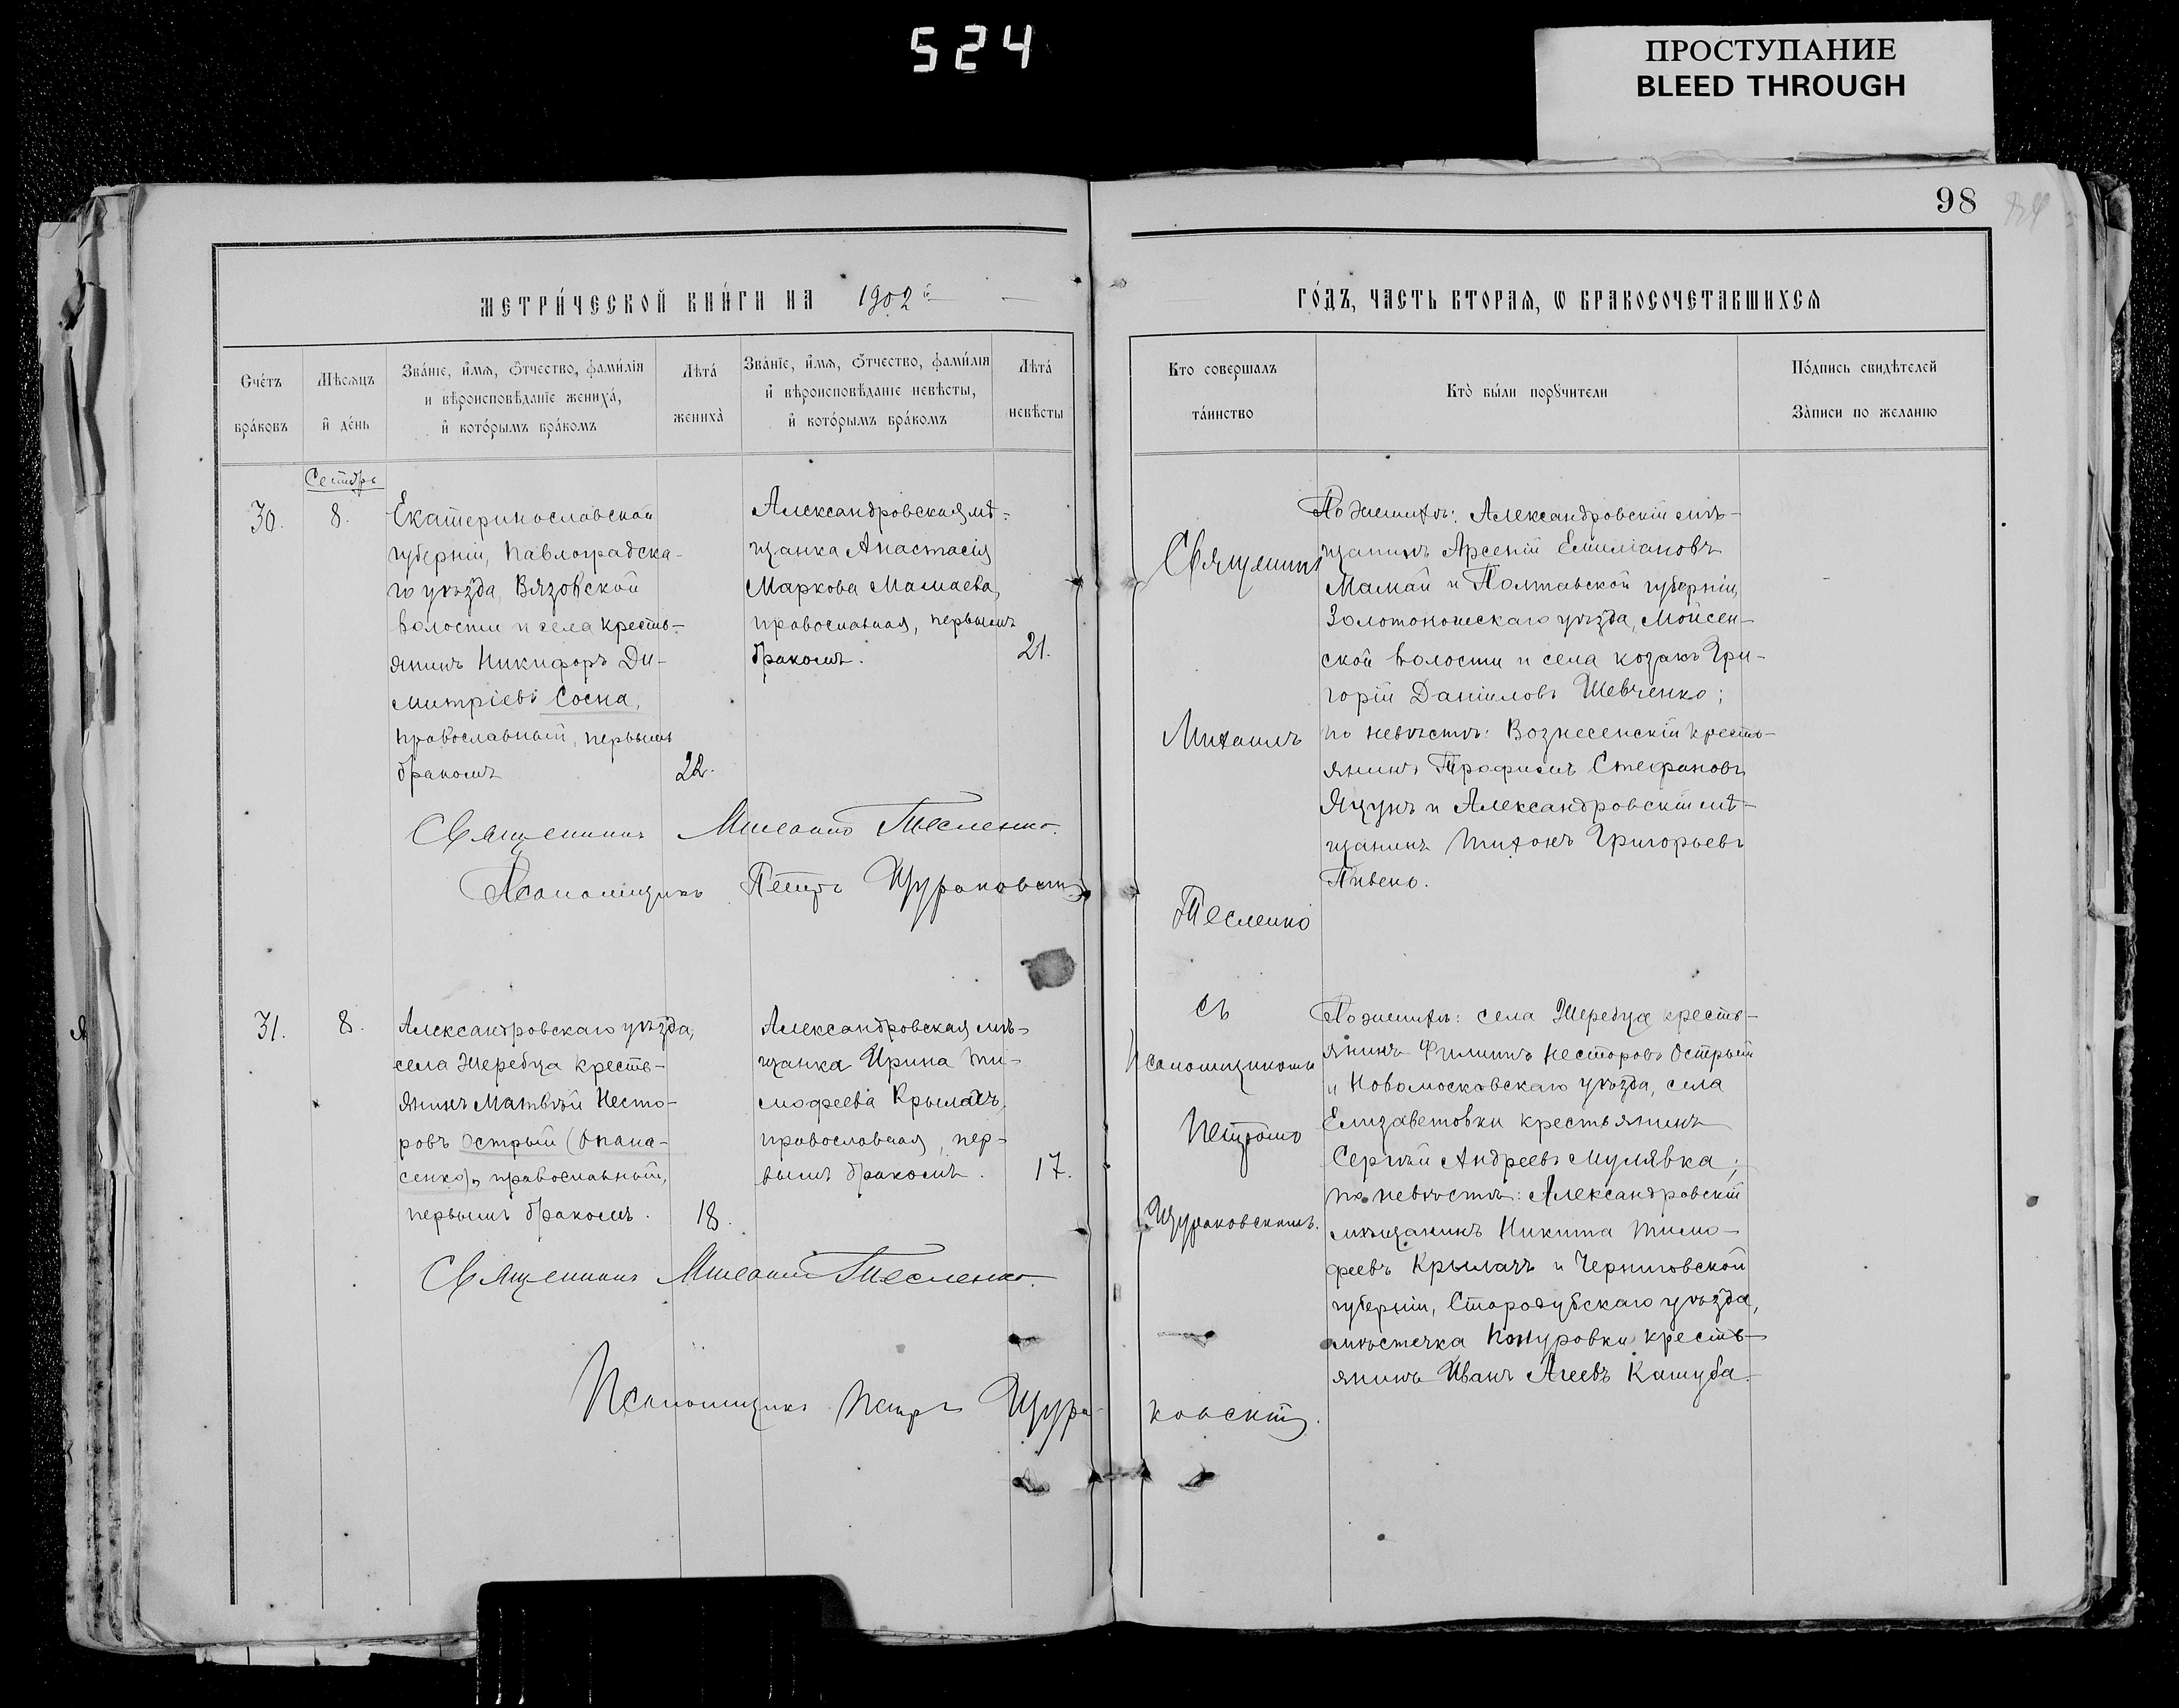 524
ПРОСТУПАНИЕ
BLEED THROUGH
98
МЕТРИ́ЧЕСКОЙ КНИ́ГИ НА 1902й
ГО́ДЪ, ЧАСТЬ ВТОРАѦ, Ѡ БРАКОСОЧЕТАВШИХСѦ
Счетъ
бра́ковъ
Мѣсѧцъ
и́ де́нь
Зва́нїе, и́мѧ, ѻтчество, фами́лїя
и вѣроисповѣданїе жениха́,
и́ кото́рымъ бра́комъ
Лѣта́
жениха̀
Зва́нїе, и́мѧ, ѻтчество, фами́лїя
и́ вѣроисповѣданїе невѣсты,
и́ кото́рымъ бра́комъ
Лѣта́
невѣсты
Кто совершалъ
та́инство
Кто̀ бы́ли порꙋчители
По́дпись свидѣтелей
За́писи по желанїю
Сентябрь
30.
8.
Екатеринославской
губерніи, Павлоградска-
го уѣзда, Вязовской
волости и села кресть-
янинъ Никифоръ Ди-
митріевъ Сосна,
православный, первымъ
бракомъ
22.
Александровская мѣ-
щанка Анастасія
Маркова Мамаева,
православная, первымъ
бракомъ.
21.
Священникъ Михаилъ Тесленко.
Псаломщикъ Петръ Щураковскій
Священникъ
Михаилъ
Тесленко
съ
Псаломщикомъ
Петромъ
Щураковскимъ.
По женихѣ: Александровскій мѣ-
щанинъ Арсеній Емиліановъ
Мамай и Полтавской губерніи,
Золотоношскаго уѣзда, Мойсен-
ской волости и села козакъ Гри-
горій Даніиловъ Шевченко;
по невѣстѣ: Вознесенскій кресть-
янинъ Трофимъ Стефановъ
Яцунъ и Александровскій мѣ-
щанинъ Тихонъ Григорьевъ
Пивень.
31.
8.
Александровскаго уѣзда,
села Жеребца кресть-
янинъ Матвѣй Несто-
ровъ Острый (Опана-
сенко), православный,
первымъ бракомъ.
18.
Александровская мѣ-
щанка Ирина Ти-
мофеева Крылачъ,
православная, пер-
вымъ бракомъ.
17.
Священникъ Михаилъ Тесленко.
Псаломщикъ Петръ Щура-
ковскій.
По женихѣ: села Жеребца кресть-
янинъ Филиппъ Несторовъ Острый
и Новомосковскаго уѣзда, села
Елизаветовки крестьянинъ
Сергѣй Андреевъ Мулявка;
по невѣстѣ: Александровскій
мѣщанинъ Никита Тимо-
феевъ Крылачъ и Черниговской
губерніи, Стародубскаго уѣзда,
мѣстечка Понуровки кресть-
янинъ Иванъ Агеевъ Кашуба.